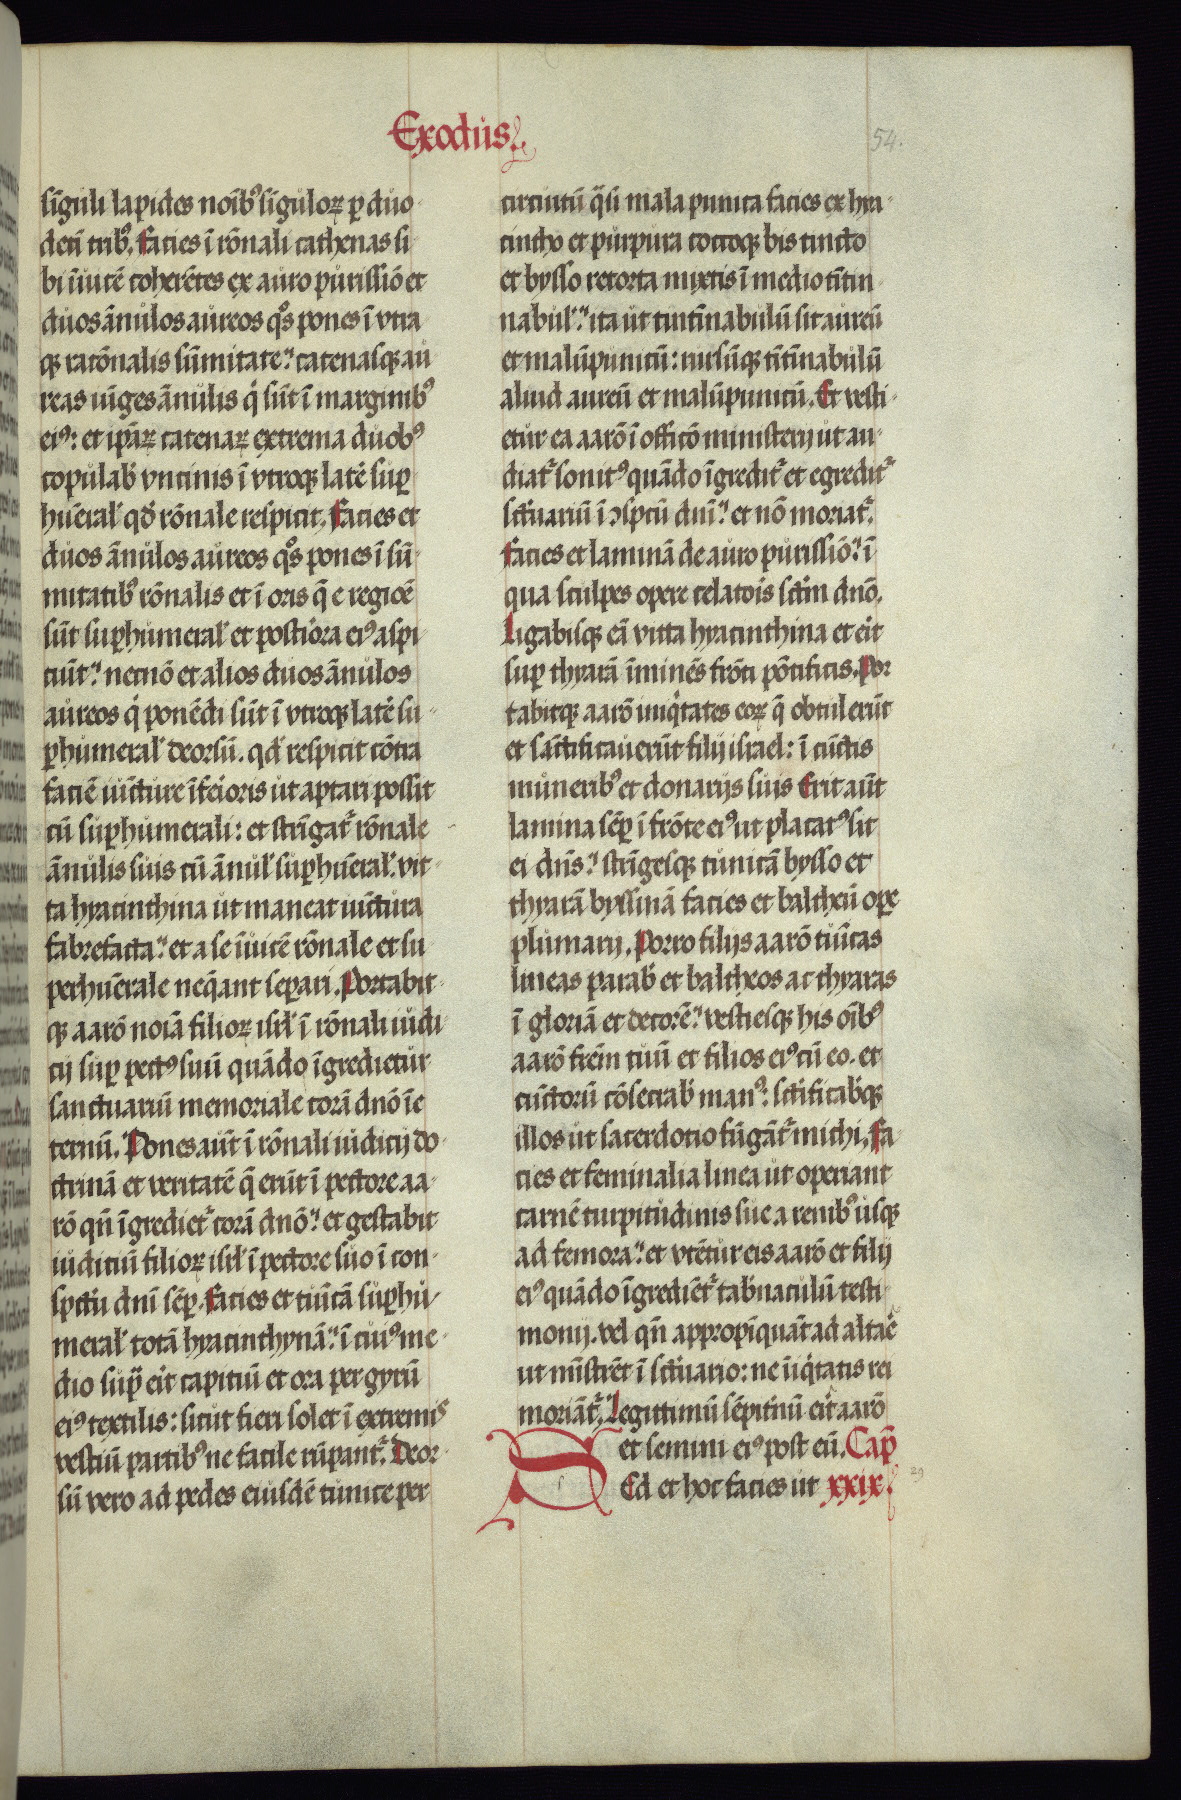 Exodus
54.
singuli lapides noīb9 singuloꝝ ꝑ duo
decī trib9. Facies ī rōnali cathenas si
bi īuicē coherētes ex auro purissīo et
duos ānulos aureos qͦs pones ī vtra
qꝫ ratōnalis sūmitate: catenasqꝫ au
reas iūges ānulis q̇ sūt ī marginib9
ei9: et ipāꝝ catenaꝝ extrema duob9
copulab̄ vncinis ī vtroqꝫ latē suꝑ
hūeral̄ qd̄ rōnale respicit. Facies et
duos ānulos aureos qͦs pones ī sū
mitatib9 rōnalis et ī oris q̄ e regiōe
sūt suꝑhumeral̄ et posteriora ei9 aspi
ciūt: necnō et alios duos ānulos
aureos q̇ ponēdi sūt ī vtroqꝫ latē su
ꝑhumeral̄ deorsū. qd̄ respicit cōtra
faciē iūcture īferioris ut aptari possit
cū suꝑhumerali: et strīgat᷑ rōnale
ānulis suis cū ānul̄ suꝑhūeral̄ vit
ta hyacinthina ut maneat iūctura
fabrefacta: et a se īuicē rōnale et su
perhūerale neq̄ant separi. Portabit
qꝫ aarō noīa filioꝝ isrl̄ ī rōnali iudi
cij suꝑ pect9 suū quādo īgredietur
sanctuariū memoriale corā dnō ī e
ternū. Pones aūt ī rōnali iudicij do
ctrinā et veritatē q̄ erūt ī pectore aa
rō qn̄ īgrediet᷑ corā dnō: et gestabit
iudiciū filioꝝ isrl̄ ī pectore suo ī con
spctu dnī sēꝑ. Facies et tuīcā suꝑhu
meral̄ totā hyacinthynā: ī cui9 me
dio supͣ erit capitiū et ora per gyrū
ei9 textilis: sicut fieri solet ī extremis
vestiū partib9 ne facile rūpant᷑. Deor
sū vero ad pedes eiusdē tunice per
circuitū q̄si mala punica facies ex hya
cintho et purpura coccoqꝫ bis tincto
et bysso retorta mixtis ī medio tītin
nabul̄: ita ut tintīnabulū sit aureū
et malūpunicū: rursūqꝫ tītīnabulū
aliud aureū et malūpunicū. Et vesti
etur ea aarō ī offitō ministerij ut au
diat᷑ sonit9 quādo īgredit᷑ et egredit᷑
sctuariū ī ꝯspctū dnī: et nō moriat᷑.
Facies et laminā de auro purissīo: ī
qua sculpes opere celatoīs sctm̄ dnō.
Ligabisqꝫ eā vitta hyacinthina et erit
suꝑ thyarā īminēs frōti pōtificis. Por
tabitqꝫ aarō iniq̇tates eoꝝ q̄ obtulerūt
et sāctificauerūt filij israel: ī cūctis
munerib9 et donarijs suis Erit aūt
lamina sēꝑ ī frōte ei9 ut placat9 sit
ei dnīs: strīgesqꝫ tunicā bysso et
thyarā byssinā facies et baltheū oꝑe
plumarij. Porro filijs aarō tuīcas
lineas parab̄ et baltheos ac thyaras
ī gloriā et decorē: vestiesqꝫ his oīb9
aarō frēm tuū et filios ei9 cū eo. et
cūctorū cōsecrab̄ man9: sctificab̄qꝫ
illos ut sacerdotio fūgāt᷑ michi. Fa
cies et feminalia linea ut operiant
carnē turpitudinis sue a renib9 usqꝫ
ad femora: et vtētur eis aarō et filij
ei9 quādo īgrediēt᷑ tab̄naculū testi
monij. vel qn̄ appropīquāt ad altarē
ut mīstrēt ī sctuario: ne īiq̇tatis rei
moriāt᷑. Legittimū sēpitnū erit aarō
et semini ei9 post eū. Cap̄
SEd et hoc facies ut xxix.
29